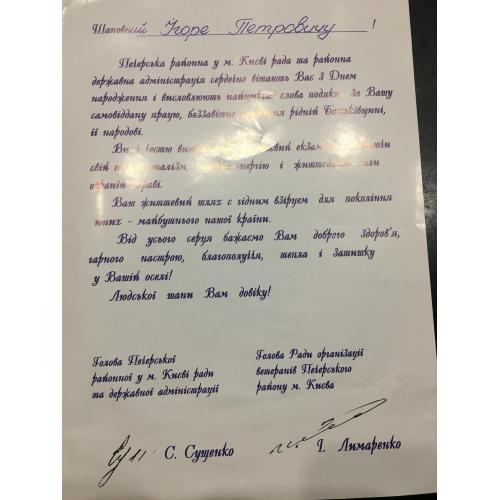 Шановний Ігоре Петровичу !
Печерська районна у м. Києві рада та районна
державна адміністрація сердечно вітають Вас з Днем
народження і висловлюють найщиріші слова подяки за Вашу
самовіддану працю, беззавітне рідній Батьківщині,
її народові.
Ви з честю життєвий екзамен,
свій енергію і життєдайні сили
обраній справі.
Ваш життєвий шлях є гідним взірцем для покоління
юних - майбутнього нашої країни.
Від усього серця бажаємо Вам доброго здоров'я,
гарного настрою, благополуччя, тепла і затишку
у Вашій оселі!
Людської шани Вам довіку!
Голова Печерської
районної у м. Києві ради
та державної адміністрації
С. Сущенко
Голова Ради організації
ветеранів Печерського
району м. Києва
І. Лимаренко